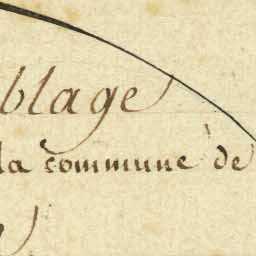 blage
la commune de